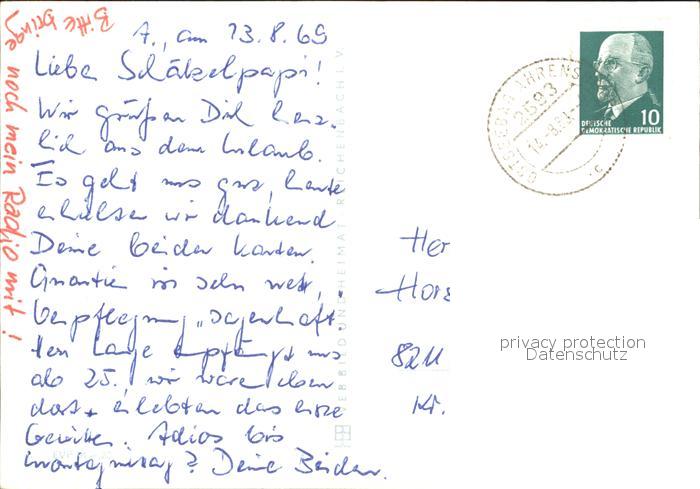 A., am 13.8.69
Lieber Schätzelpapi!
Wir grüßen Dich herz-
lich aus dem Urlaub.
Es geht uns gut, heute
erhielten wir dankend
Deine beiden Karten.
Quartier ist sehr nett,
Verpflegung „sagenhaft"
ab 25., wir waren eben
dort + erlebten das erste
Gewitter. Adios bis
montagmittag? Deine Beiden.
Bitte bringe noch mein Radio mit!
VERBILDUNG HEIMAT REICHENBACH I. V.
OSTSEEBAD AHRENS
2593
14.-8.69
c
10
DEUTSCHE
DEMOKRATISCHE REPUBLIK
Her
Hors
8211
Kr.
privacy protection
Datenschutz